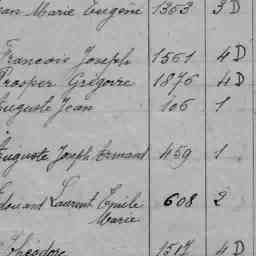 Jean Marie Eugène 1363 3 D
Francois Joseph 1561 4 D
Prosper Grégoire 1876 4 D
Auguste Jean 106 1
Auguste Joseph Armand 459 1
Edouard Laurent Emile 608 2
Marie
Théodore 1517 4 D